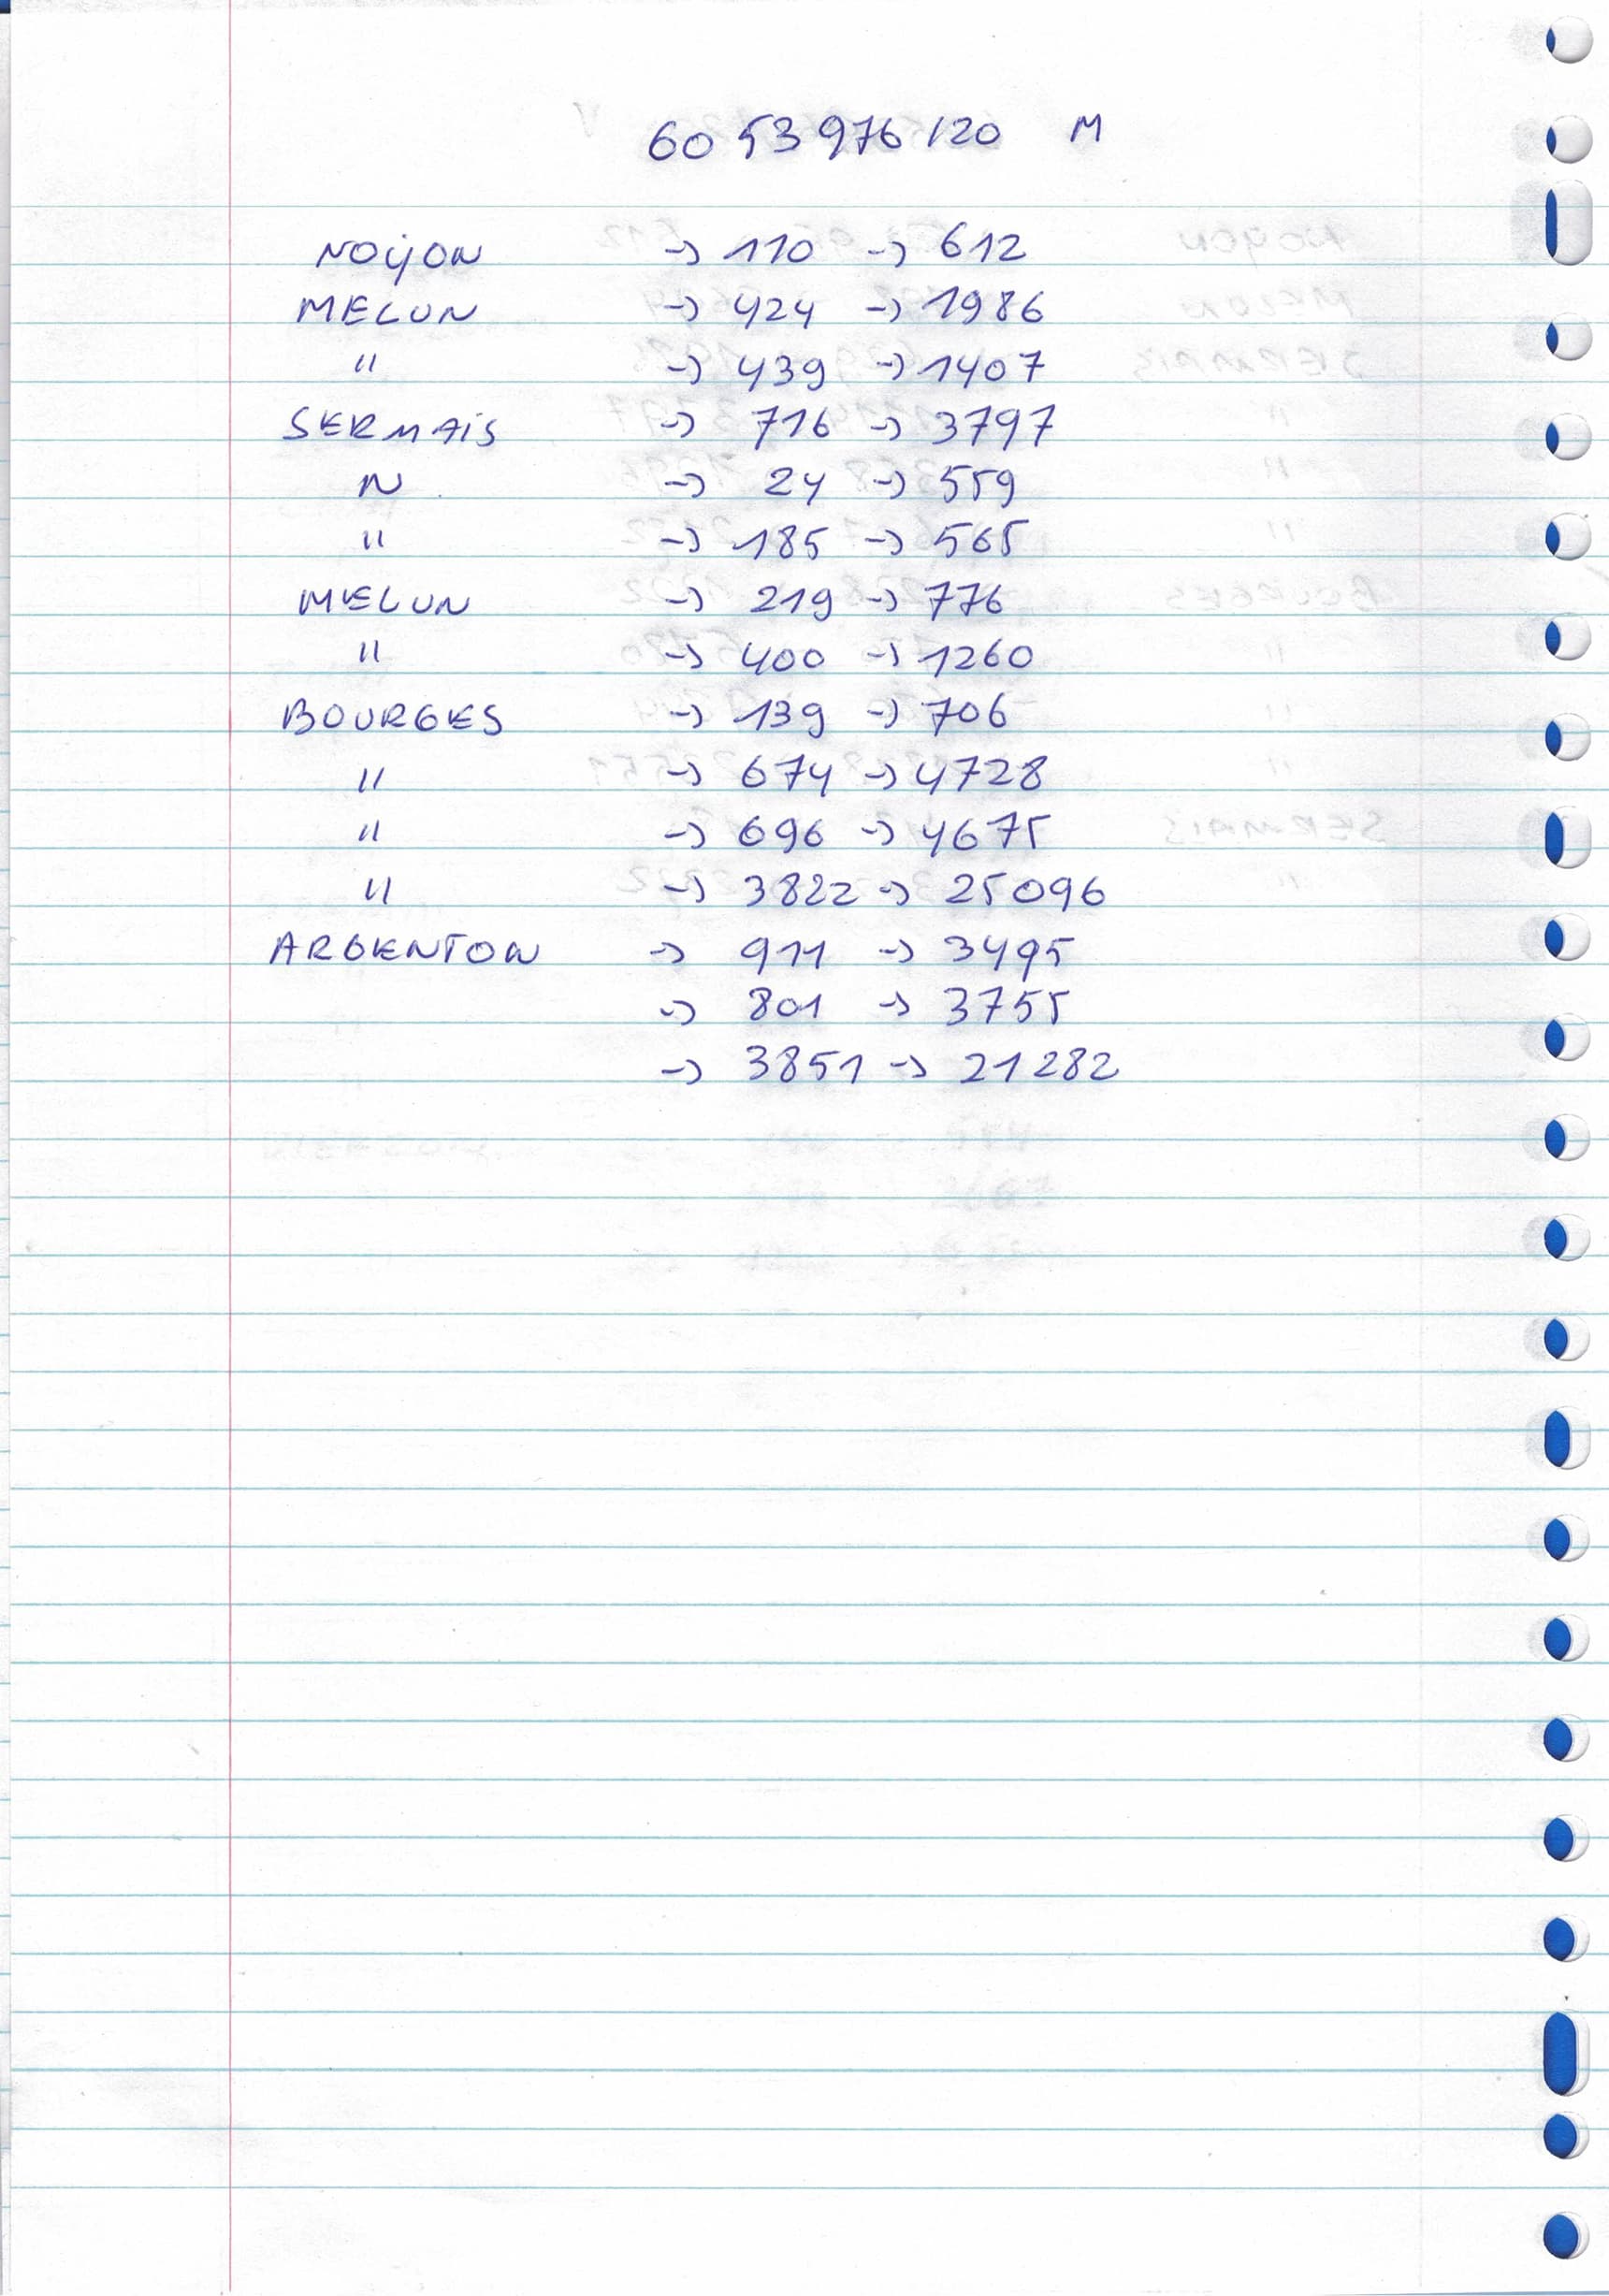 60 53 976 120 M
NOYON -> 110 -> 612
MELUN -> 424 -> 1986
" -> 439 -> 1407
SERMAIS -> 716 -> 3797
N -> 24 -> 559
" -> 185 -> 565
MELUN -> 219 -> 776
" -> 400 -> 1260
BOURGES -> 139 -> 706
" -> 674 -> 4728
" -> 696 -> 4675
" -> 3822 -> 25096
ARGENTON -> 911 -> 3495
-> 801 -> 3755
-> 3851 -> 21282